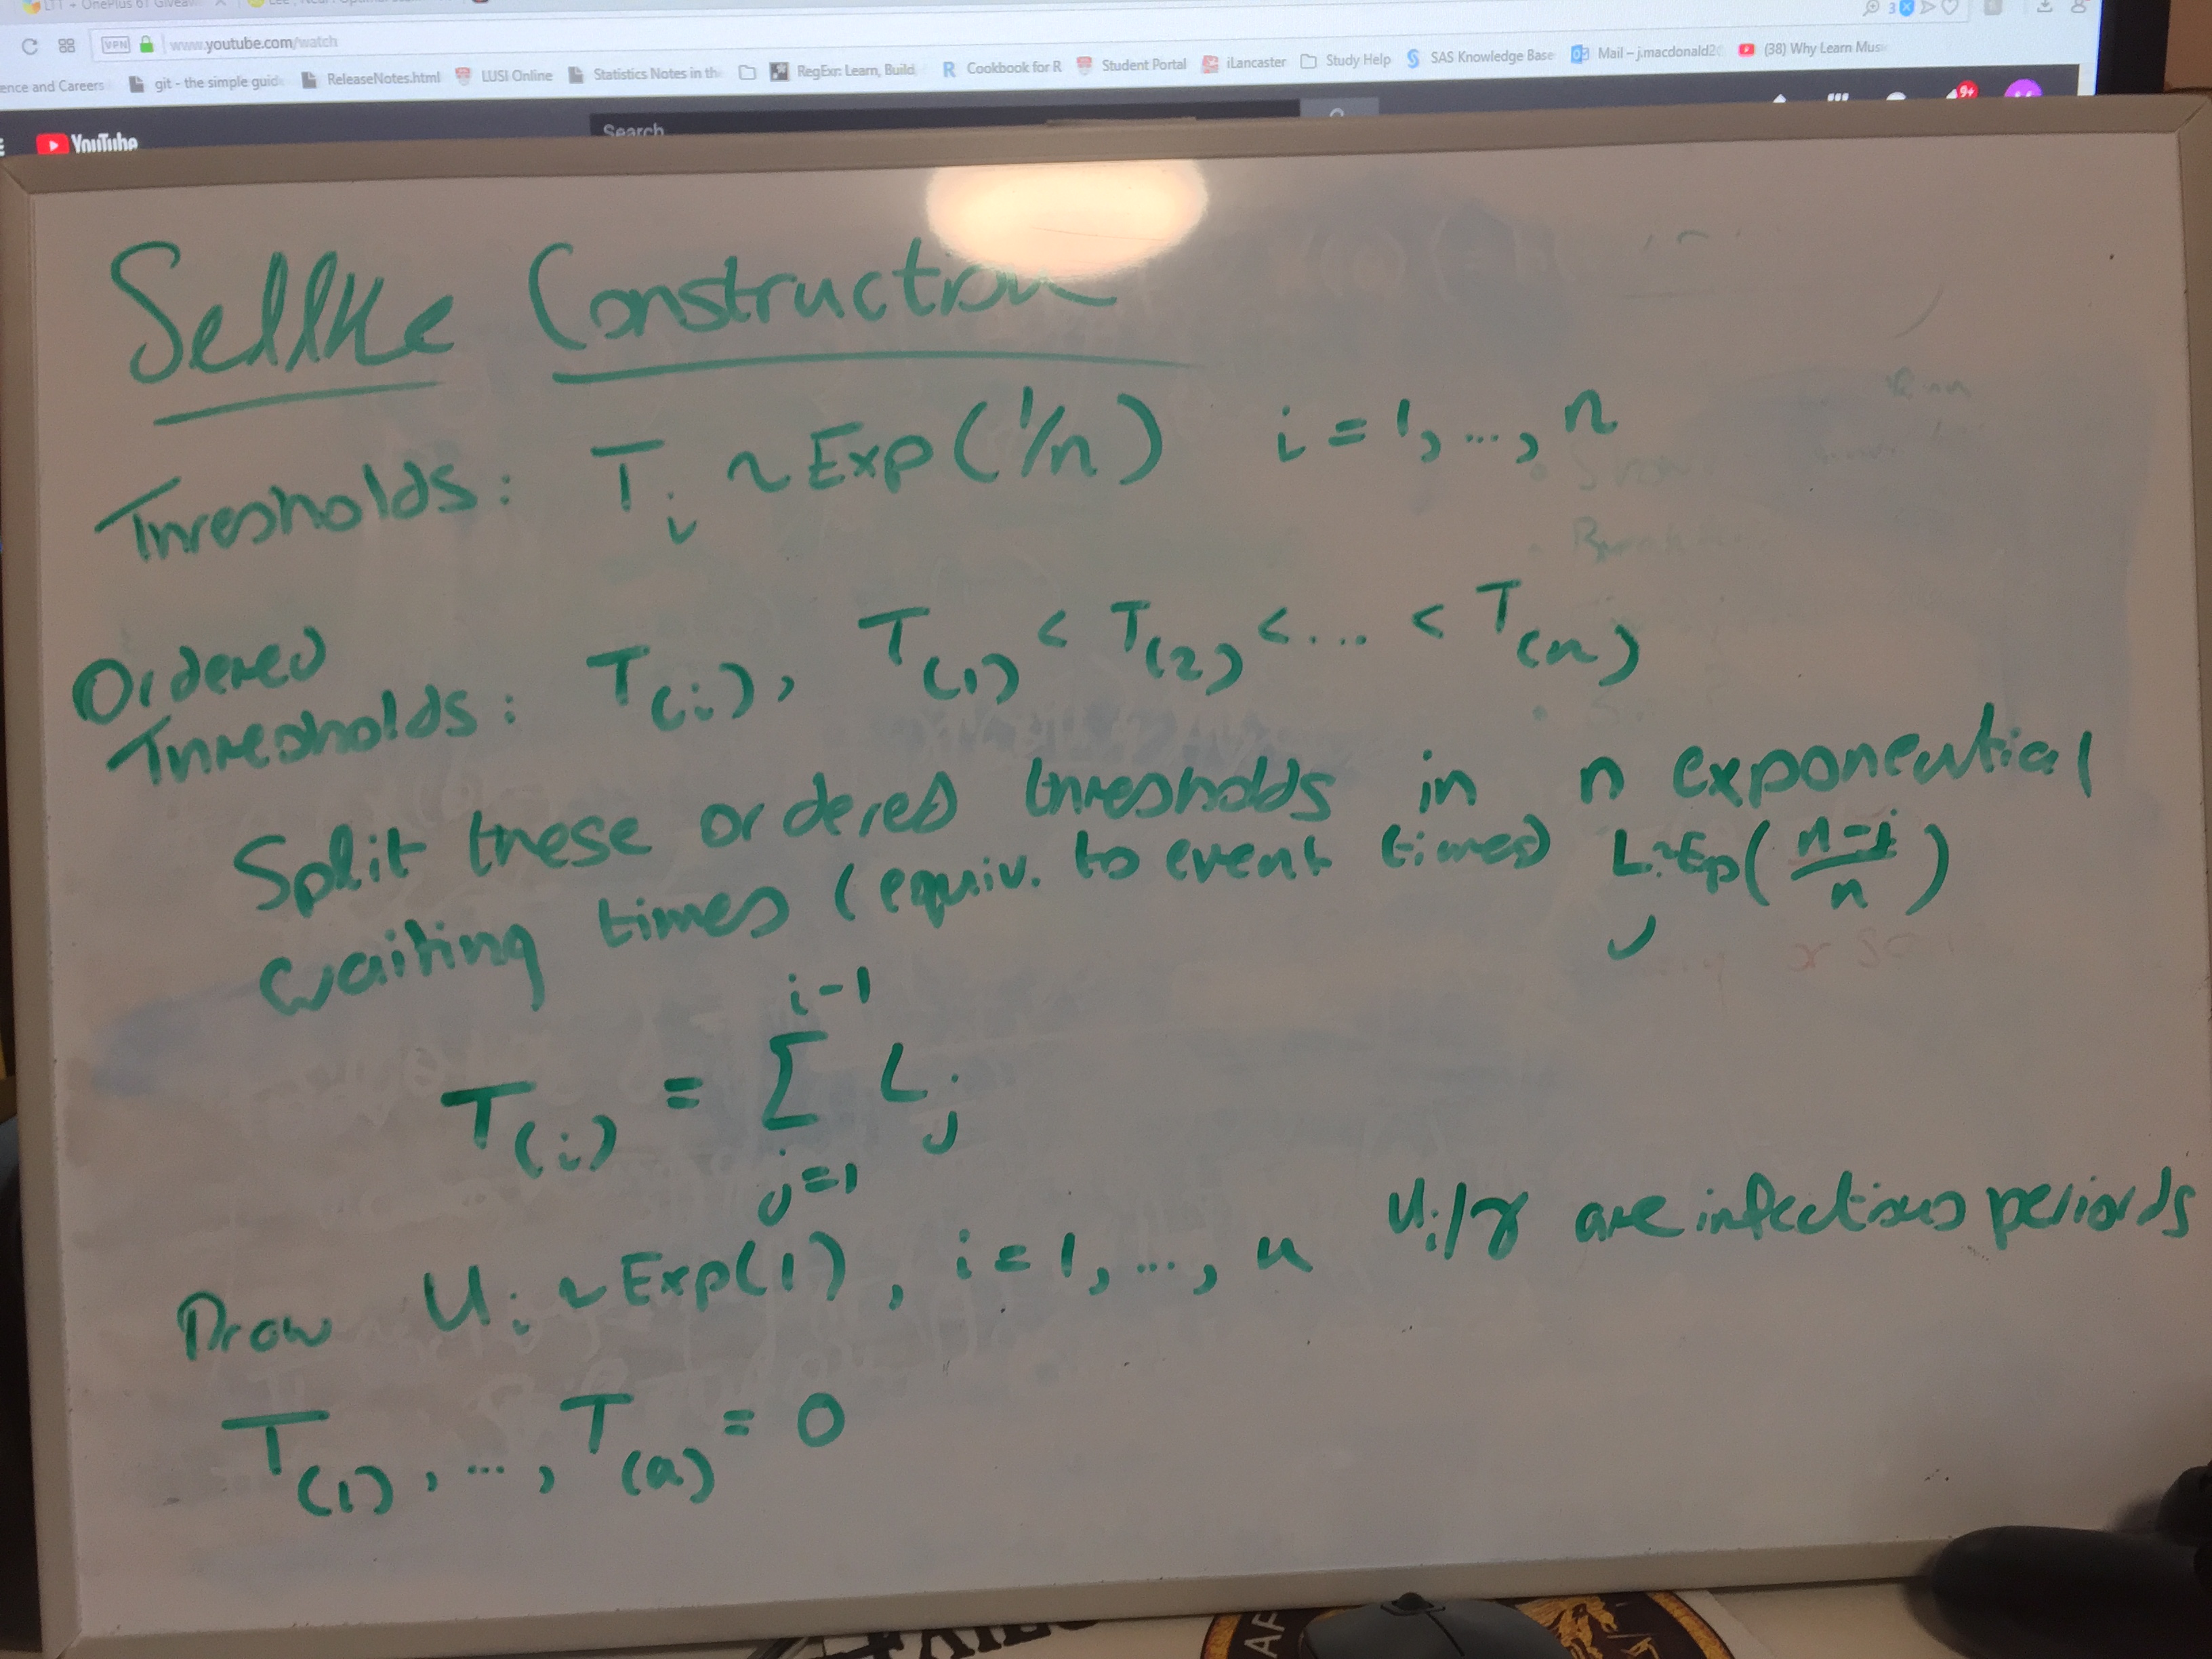 LTT + OnePlus 6T Giveaw
3
VPN www.youtube.com/watch
ence and Careers git - the simple guid ReleaseNotes.html LUSI Online Statistics Notes in th RegExr: Learn, Build Cookbook for R Student Portal iLancaster Study Help SAS Knowledge Base Mail – j.macdonald2 (38) Why Learn Mus
9+
YouTube Search
Sellke Construction
Thresholds: T_i ~ Exp(1/n) i = 1, ..., n
Ordered
Thresholds: T_(i), T_(1) < T_(2) < ... < T_(n)
Split these ordered thresholds in n exponential
waiting times (equiv. to event times) L_j ~ Exp((n-j)/n)
i-1
T_(i) = Σ L_j
j=1
Draw U_i ~ Exp(1), i = 1, ..., n U_i/γ are infectious periods
T_(1), ..., T_(a) = 0